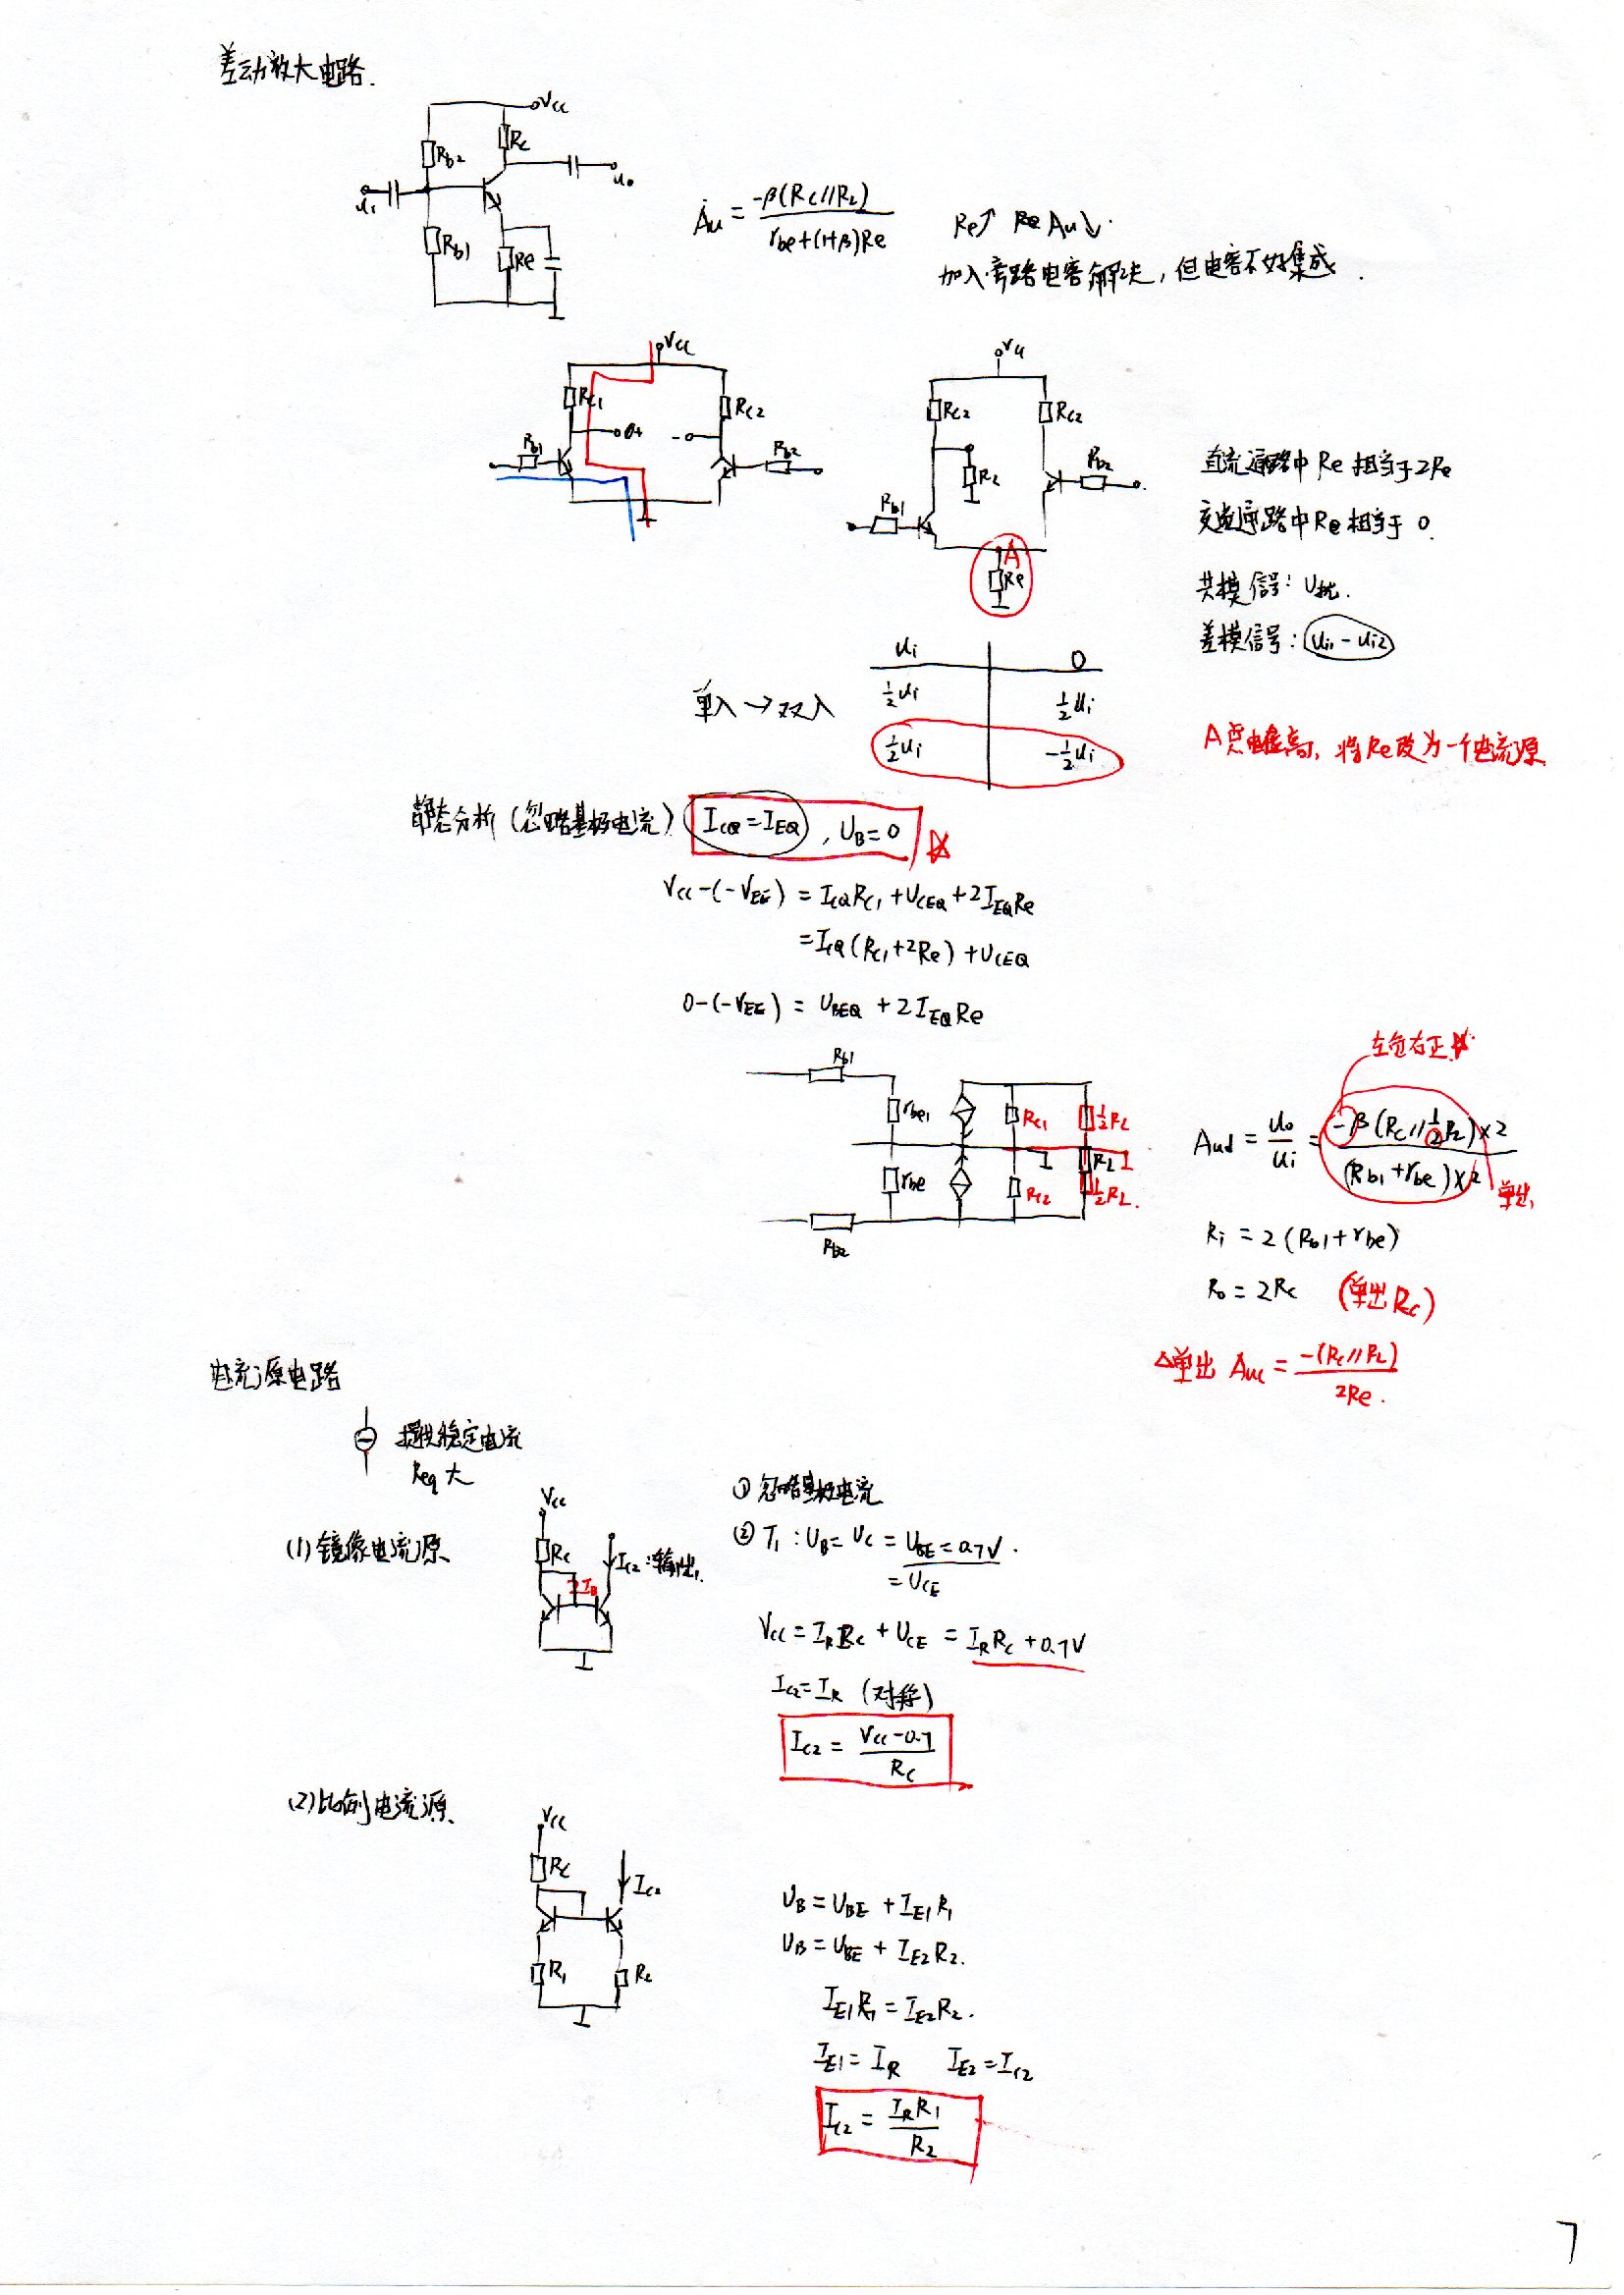 差动放大电路.
VCC
Rb2
Rc
ui
uo
Rb1
Re
Au = -β(Rc//RL) / rbe+(1+β)Re
Re↑ Re Au↓.
加入旁路电容解决, 但电容不好集成.
VCC
VCC
Rc1
Rc2
Rc2
Rc2
Rb1
Rb2
RL
Rb2
Rb1
A
Re
直流通路中Re相当于2Re
交流通路中Re相当于0.
共模信号: U扰.
差模信号: ui1 - ui2
ui 0
单入→双入
½ui ½ui
½ui -½ui
A点电位高, 将Re改为一个电流源
静态分析(忽略基极电流) ICQ=IEQ, UB=0
VCC-(-VEE) = ICQRC1+UCEQ+2IEQRe
=ICQ(RC1+2Re)+UCEQ
0-(-VEE) = UBEQ + 2IEQRe
左负右正
Rb1
rbe1
Rc1
½RL
rbe
Rc2
RL
½RL.
Rb2
Aud = uo/ui = -β(Rc//½RL)×2 / (Rb1+rbe)×2
单出
Ri = 2(Rb1+rbe)
Ro = 2Rc (单出Rc)
△单出 Auc = -(Rc//RL) / 2Re.
电流源电路
提供稳定电流
Req大
(1)镜像电流源
VCC
Rc
IC2:输出.
2IB
① 忽略基极电流
② T1: UB=UC=UBE=0.7V.
=UCE
VCC=IRRc+UCE=IRRc+0.7V
IC2=IR (对称)
IC2 = VCC-0.7 / RC
(2)比例电流源
VCC
Rc
IC2
R1
UB=UBE+IE1R1
UB=UBE+IE2R2.
IE1R1=IE2R2.
IE1=IR IE2=IC2
IC2 = IRR1 / R2
7